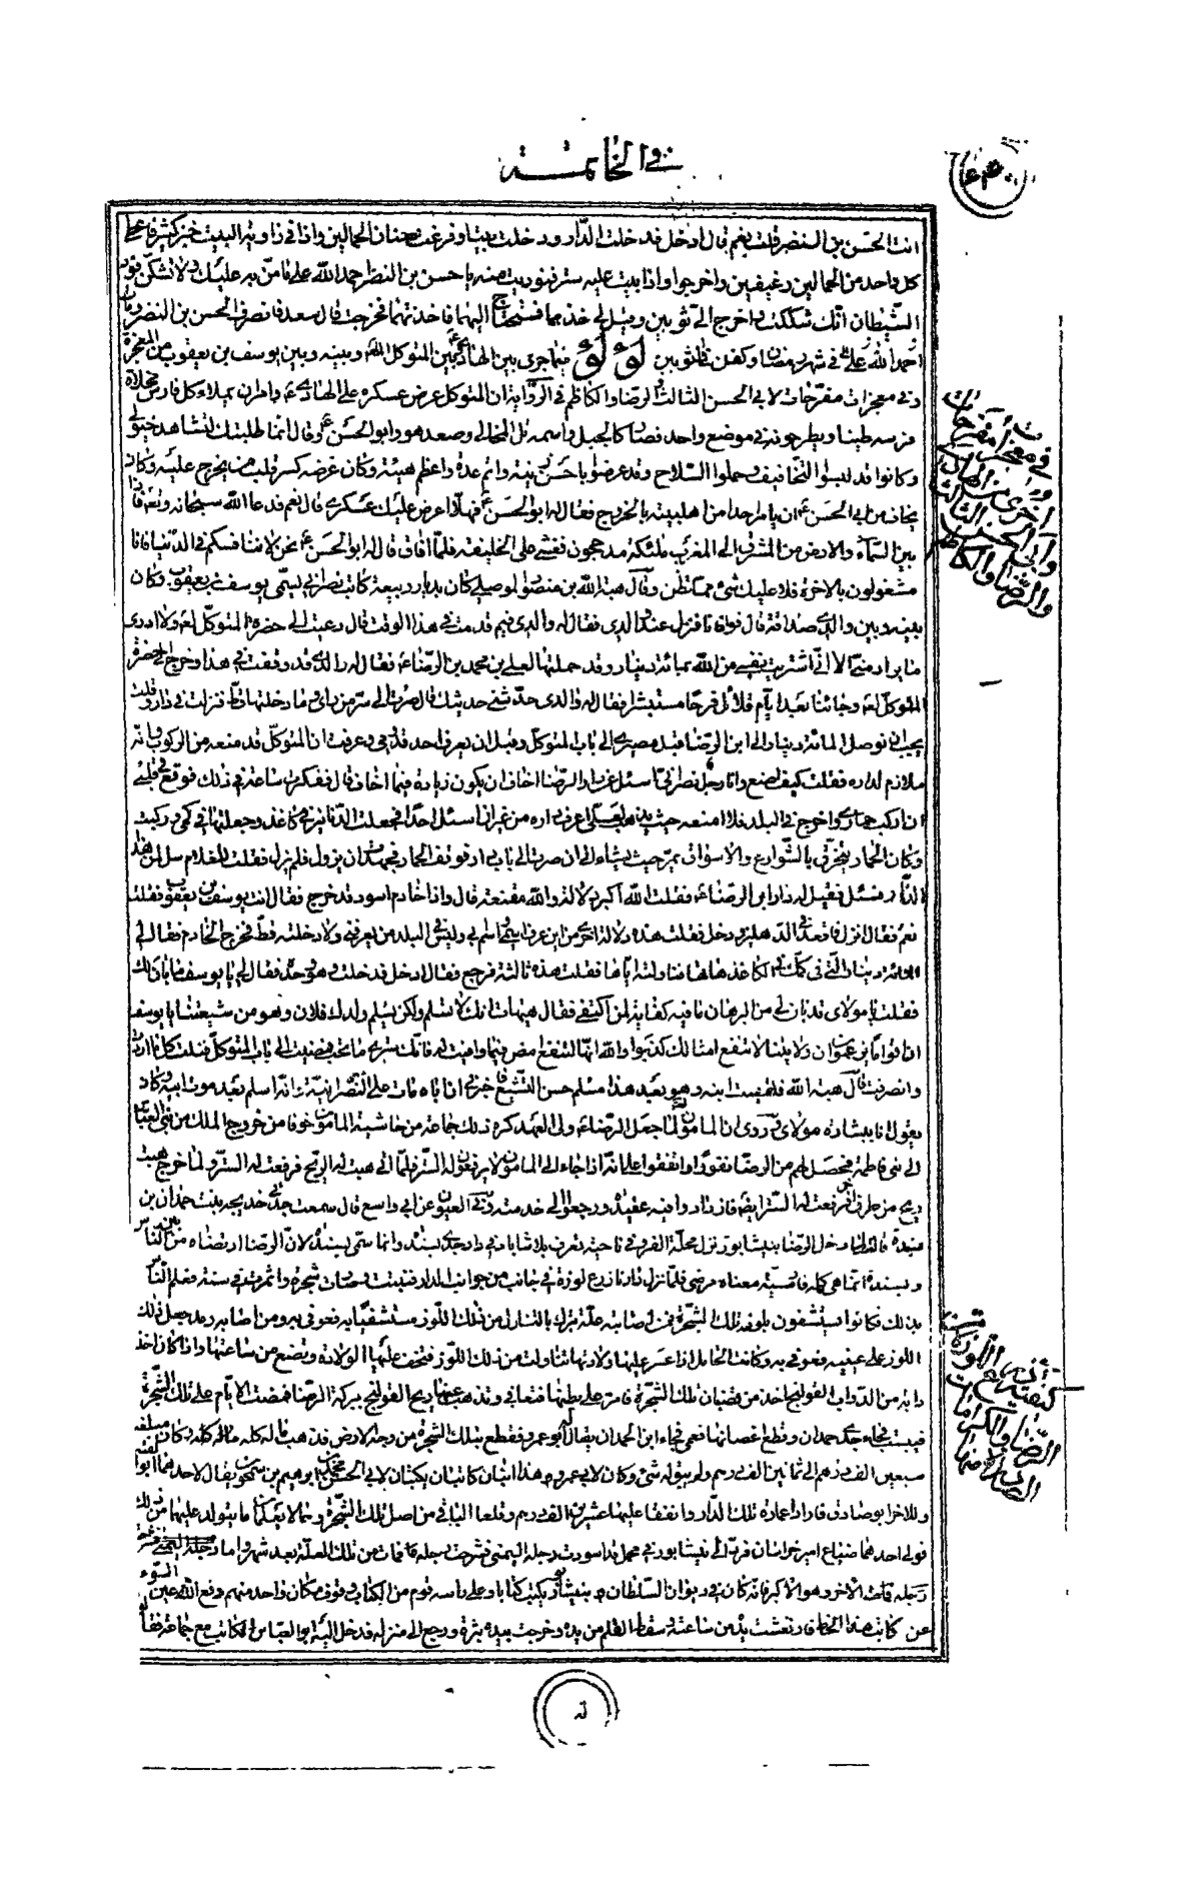 في الخاتمة
انت الحسن بن النضر قلت نعم قال ادخل فدخلت الدار ودخلت بيتا وفرغت صنان الحمالين واذا في زاوية البيت خبز كثير فاعطى
كل واحد من الحمالين رغيفين واخرجوا واذا بيت عليه ستر فنوديت منه يا حسن بن النضر احمد الله على ما من به عليك ولا تشكن فود
الشيطان انك شككت واخرج الي ثوبين وقيل لي خذهما فستحتاج اليهما فاخذتهما فخرجت قال سعد فانصرف الحسن بن النضر ومات
في شهر رمضان وكفن في الثوبين لؤلؤ فيما جرى بين الهادي وبين المتوكل وبينه وبين يوسف بن يعقوب من المعجزة
وفي معجزات مفرحات لابي الحسن الثالث والرضا والكاظم في الرواية ان المتوكل عرض عسكره على الهادي وامر ان يملاء كل فارس مخلاة
فرسه طينا ويطرحونه في موضع واحد فصار كالجبل واسمه تل المخالي وصعد هو وابو الحسن وقال انما طلبتك لتشاهد خيولي
وكانوا قد لبسوا التخافيف وحملوا السلاح وقد عرضوا باحسن زينة واتم عدة واعظم هيئة وكان غرضه كسر قلب من يخرج عليه وكان
يخاف من ابي الحسن ان يامر احدا من اهل بيته بالخروج فقال له ابو الحسن فهل اعرض عليك عسكري قال نعم فدعا الله سبحانه وتعالى فاذا
بين السماء والارض من المشرق الى المغرب ملئكة مدججون فغشي على الخليفة فلما افاق قال له ابو الحسن نحن لا ننافسكم في الدنيا فانا
مشغولون بالاخرة فلا عليك شيء مما تظن وقال هبة الله بن منصور الموصلي كان بديار ربيعة كاتب نصراني يسمى يوسف بن يعقوب وكان
بينه وبين والدي صداقة قال فوافانا فنزل عند والدي فقال له والدي فيم قدمت في هذا الوقت قال دعيت الى حضرة المتوكل ولا ادري
ما يراد مني الا اني اشتريت نفسي من الله بمائة دينار وقد حملتها لعلي بن محمد بن الرضا فقال له والدي قد وفقت في هذا وخرج الى حضرة
المتوكل وجائنا بعد ايام قلائل فرحا مستبشرا فقال له والدي حدثني حديثك قال صرت الى سر من راى وما دخلتها قط فنزلت في دار وقلت
يجب ان اوصل المائة دينار الى ابن الرضا قبل مصيري الى باب المتوكل وقبل ان يعرف احد قدومي وعرفت ان المتوكل قد منعه من الركوب وانه
ملازم لداره فقلت كيف اصنع وانا رجل نصراني اسئل عن دار الرضا اخاف ان يكون زيادة فيما اخاف قال ففكرت ساعة في ذلك فوقع في قلبي
ان اركب حماري واخرج في البلد فلا امنعه حيث يذهب لعلي اعرف داره من غير ان اسئل احدا فجعلت الدنانير في كاغذ وجعلتها في كمي وركبت
وكان الحمار يتخرق بي الشوارع والاسواق يمر حيث يشاء الى ان صرت الى باب دار فوقف الحمار فجهدت ان يزول فلم يزل فقلت للغلام سل لمن هذه
الدار فسئل فقيل له دار ابن الرضا فقلت الله اكبر دلالة والله مقنعة قال واذا خادم اسود قد خرج فقال انت يوسف بن يعقوب فقلت
نعم فقال انزل فاقعدني في الدهليز ودخل فقلت هذه دلالة اخرى من اين عرف اسمي واسم ابي وليس في البلد من يعرفني ولا دخلته قط فخرج الخادم فقال لي
المائة دينار التي في كمك في الكاغذ هاتها فناولته اياها فقلت هذه ثالثة فرجع فقال ادخل فدخلت وهو وحده فقال لي يا يوسف ما بان لك
فقلت يا مولاي قد بان لي من البرهان ما فيه كفاية لمن اكتفى فقال هيهات انك لا تسلم ولكن يسلم ولدك فلان وهو من شيعتنا يا يوسف
ان اقواما يزعمون ان ولايتنا لا تنفع امثالك كذبوا والله انها لتنفع امض فيما وافيت له فانك سترى ما تحب فمضيت الى باب المتوكل فنلت كل ما اردت
وانصرفت قال هبة الله فلقيت ابنه وهو بعد هذا مسلم حسن التشيع فاخبرني ان اباه مات على النصرانية وانه اسلم بعد موت ابيه وكان
يقول انا بشارة مولاي وروى ان المامون لما جعل الرضا ولي العهد كره ذلك جماعة من حاشية المامون خوفا من خروج الملك من بني العباس
الى بني فاطمة فحصل لهم من الرضا نفور واتفقوا على انه اذا جاء الى المامون لا يرفعون له الستر فلما اتى هبت له الريح فرفعت له الستر ولما خرج هبت
ريح من طرف اخر فرفعت له الستر ايضا فازداد وافيه عقيدة ورجعوا الى خدمته وفي العيون عن ابي واسع قال سمعت جدتي خديجة بنت حمدان بن
پسنده قالت لما دخل الرضا بنيشابور نزل محلة الفرو في ناحية تعرف بلاشاباد في دار جدي پسنده وانما سمي پسنده لان الرضا ارتضاه من بين الناس
وپسنده انما هي كلمة فارسية معناه مرضي فلما نزل دارنا زرع لوزة في جانب من جوانب الدار فنبتت وصارت شجرة واثمرت في سنة فعلم الناس
بذلك فكانوا يستشفون بلوز تلك الشجرة فمن اصابته علة تبرك بالتناول من ذلك اللوز مستشفيا به فعوفي به ومن اصابه رمد جعل ذلك
اللوز على عينيه فعوفي به وكانت الحامل اذا عسر عليها ولادتها تناولت من ذلك اللوز فتخف عليها الولادة وتضع من ساعتها واذا كان اخذ
دابة من الدواب القولنج اخذ من قضبان تلك الشجرة فامر على بطنها فتعافى وتذهب عنها ريح القولنج ببركة الرضا فمضت الايام على تلك الشجرة
فيبست فجاء جدي حمدان وقطع اغصانها فعمي فجاء ابن لحمدان يقال له ابو عمرو فقطع تلك الشجرة من وجه الارض فذهب ماله كله وكان مبلغه
سبعين الف درهم الى ثمانين الف درهم ولم يبق له شيء وكان لابي عمرو هذا ابنان كاتبان يكتبان لابي الحسن محمد بن ابرهيم بن سمجور يقال لاحدهما ابو القسم
وللاخر ابو صادق فارادا عمارة تلك الدار وانفقا عليها عشرين الف درهم وقلعا الباقي من اصل تلك الشجرة وهما لا يعلمان ما يتولد عليهما من ذلك
فولي احدهما ضياع امير خراسان فرد الى نيشابور في محمل قد اسودت رجله اليمنى فشرحت رجله فمات من تلك العلة بعد شهر واما
الاخر وهو الاكبر فانه كان في ديوان السلطان بنيشابور يكتب كتابا وعلى راسه قوم من الكتاب وقوف فقال واحد منهم دفع الله عين السوء
عن كاتب هذا الخط فارتعشت يده من ساعته وسقط القلم من يده وخرجت بيده بثرة ورجع الى منزله فدخل اليه ابو العباس الكاتب مع جماعة فقالوا
له